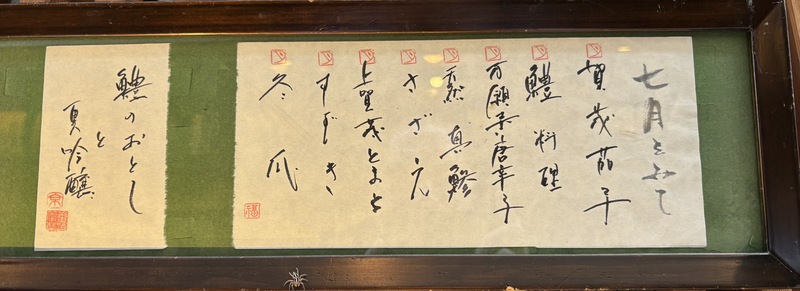 七月
賀茂茄子
鱧料理
万願寺唐辛子
真鯵
さざえ
上賀茂とまと
すずき
冬瓜
福
鱧のおとし
と
夏吟醸
京